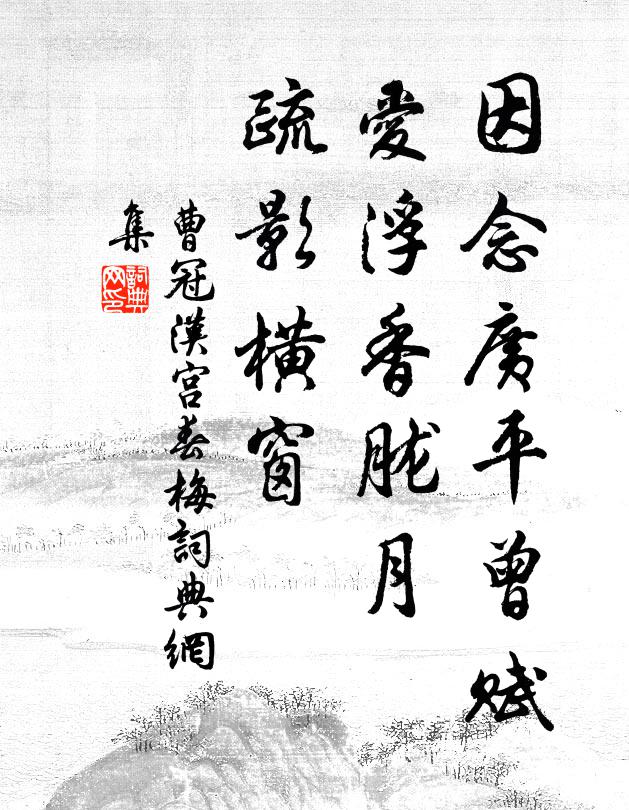 因念廣平曾賦
愛浮香胧月
疏影橫窗
曹冠漢宮春梅詞典網
集
詞典网印